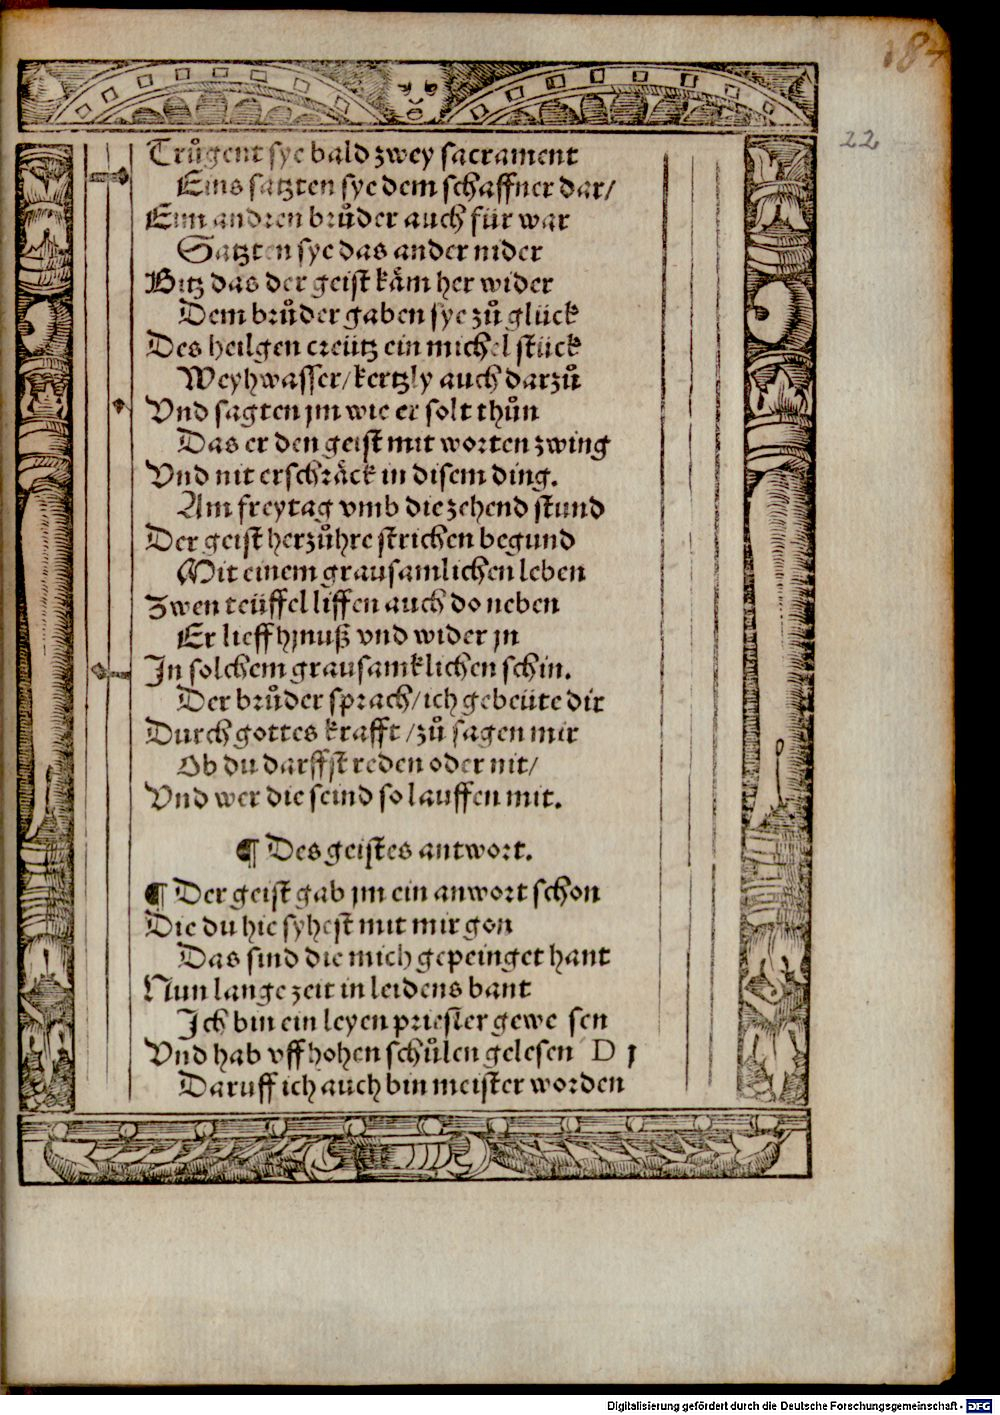 184
22
Trůgent sye bald zwey sacrament
Eins satzten sye dem schaffner dar/
Eim andren brůder auch für war
Satzten sye das ander nider
Bitz das der geist käm her wider
Dem brůder gaben sye zů glück
Des heilgen creütz ein michel stück
Weyhwasser/kertzly auch darzů
Vnd sagten jm wie er solt thůn
Das er den geist mit worten zwing
Vnd nit erschräck in disem ding.
Am freytag vmb die zehend stund
Der geist herzůhre strichen begund
Mit einem grausamlichen leben
Zwen teüffel liffen auch do neben
Er lieff hjnuß vnd wider jn
In solchem grausamklichen schin.
Der brůder sprach/ich gebeüte dir
Durch gottes krafft/zů sagen mir
Ob du darffst reden oder nit/
Vnd wer die seind so lauffen mit.
¶ Des geistes antwort.
¶ Der geist gab jm ein anwort schon
Die du hie syhest mit mir gon
Das sind die mich gepeinget hant
Nun lange zeit in leidens bant
Ich bin ein leyen priester gewe sen
Vnd hab vff hohen schůlen gelesen D j
Daruff ich auch bin meister worden
Digitalisierung gefördert durch die Deutsche Forschungsgemeinschaft - DFG